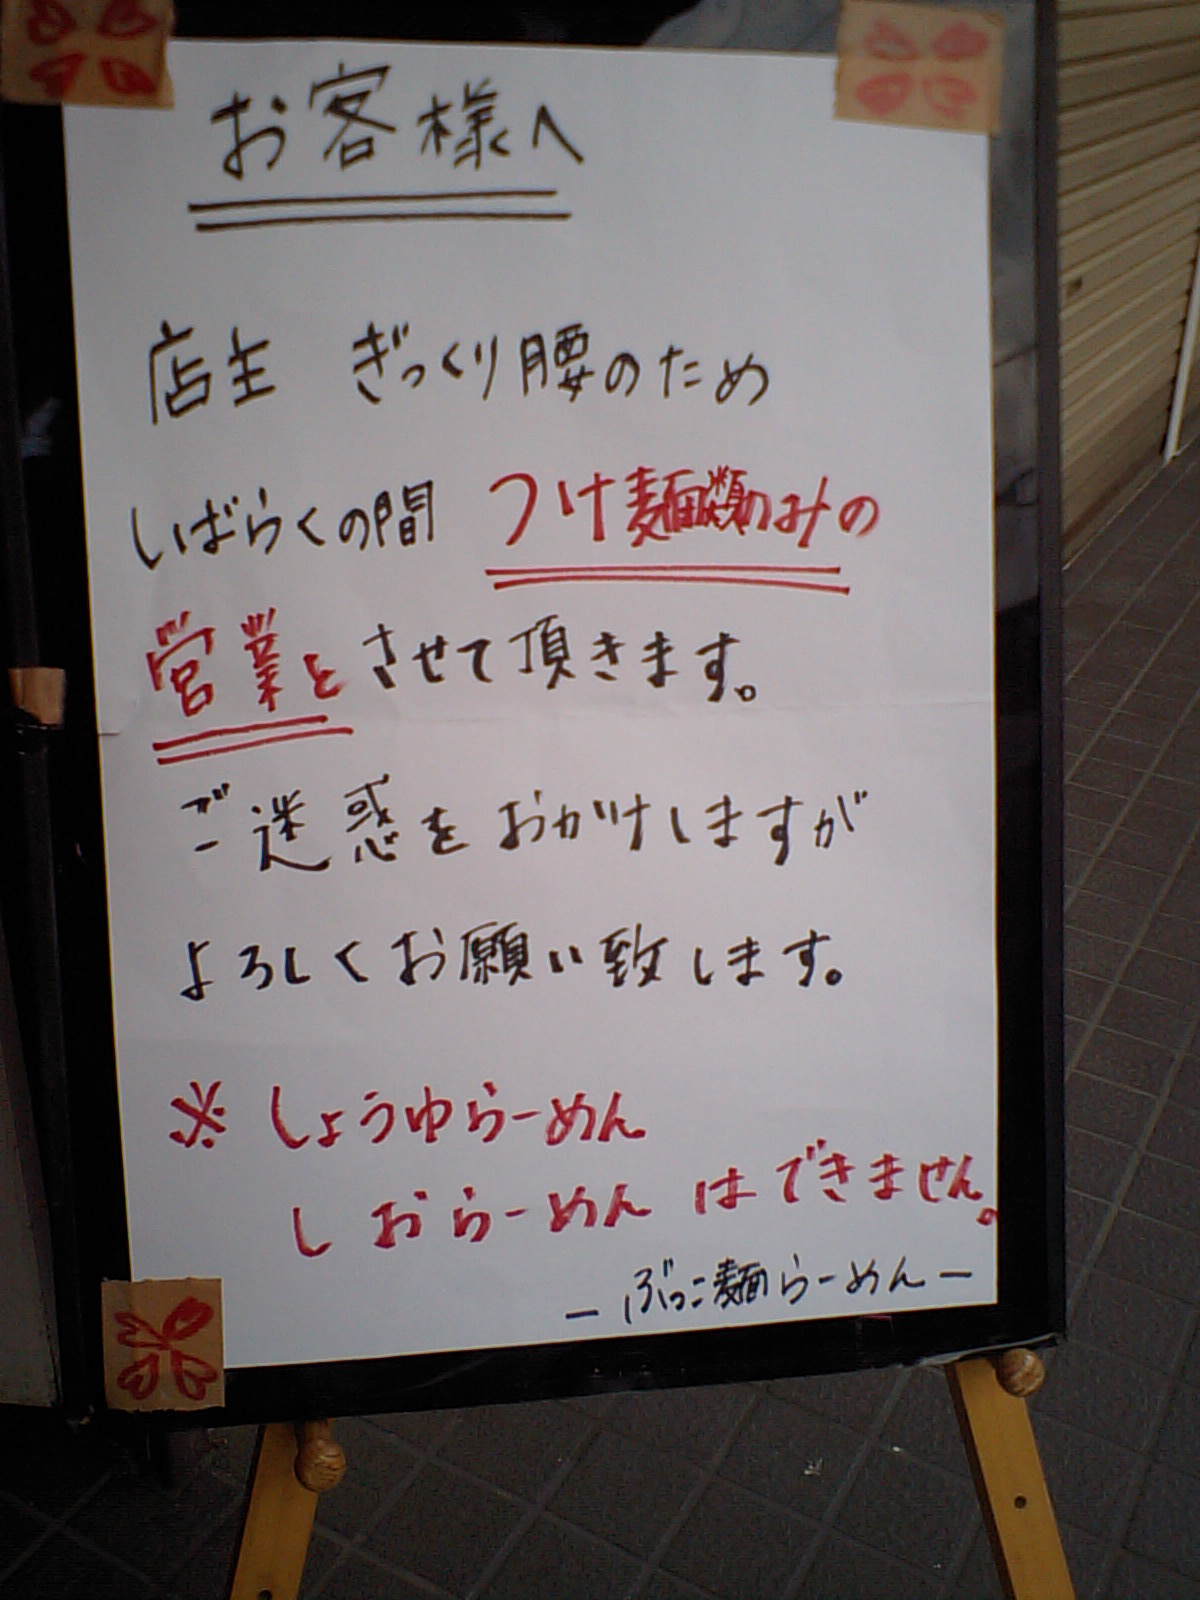 お客様へ
店主 ぎっくり腰のため
しばらくの間 つけ麺類のみの
営業とさせて頂きます。
ご迷惑をおかけしますが
よろしくお願い致します。
※ しょうゆらーめん
しおらーめん はできません。
ー ぶっこ麺らーめん ー